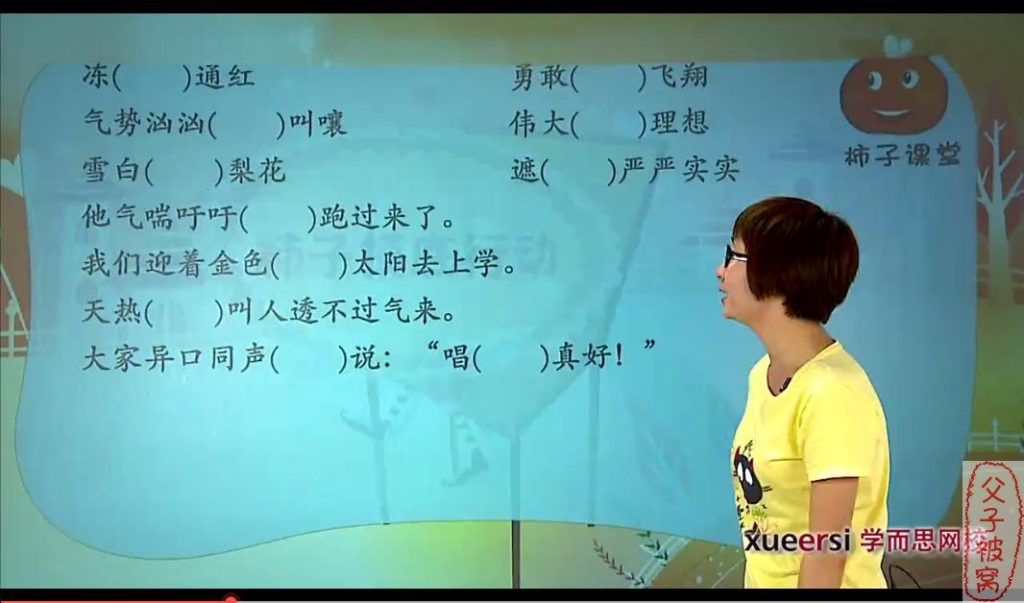 冻(　　)通红　　勇敢(　　)飞翔
气势汹汹(　　)叫嚷　　伟大(　　)理想
雪白(　　)梨花　　遮(　　)严严实实
他气喘吁吁(　　)跑过来了。
我们迎着金色(　　)太阳去上学。
天热(　　)叫人透不过气来。
大家异口同声(　　)说：“唱(　　)真好！”
柿子课堂
xueersi 学而思网校
父子被窝